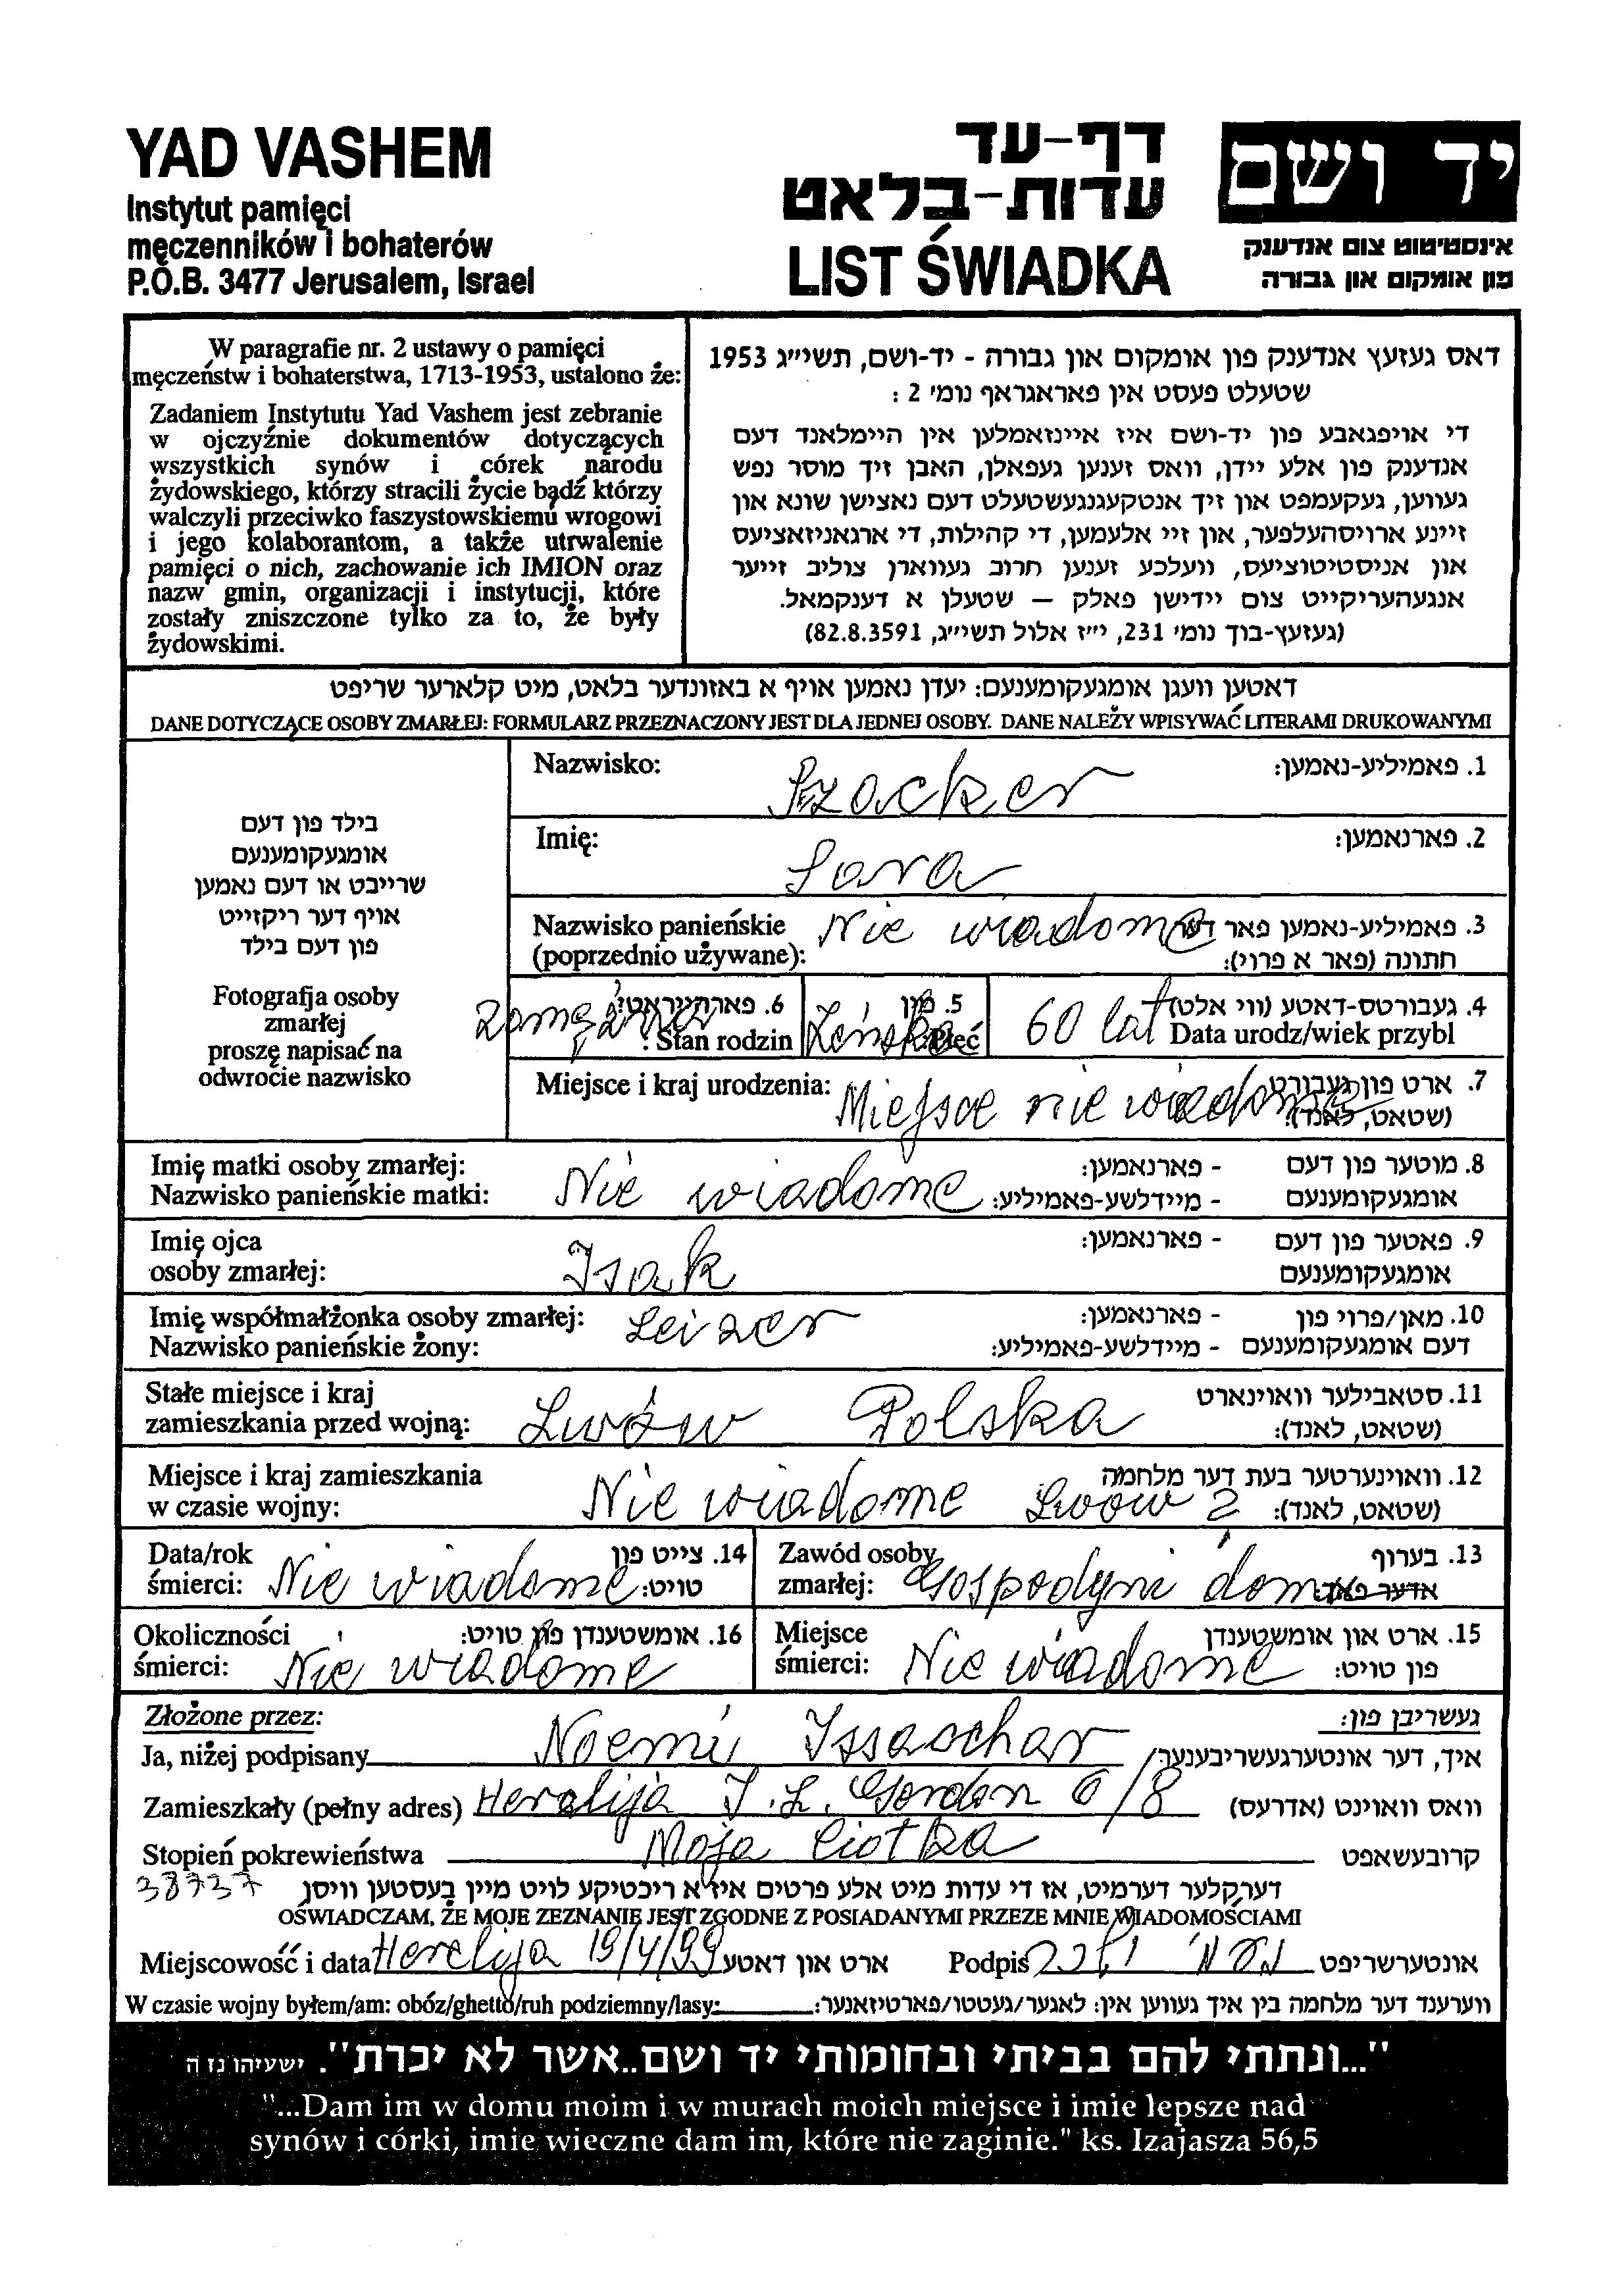 YAD VASHEM
Instytut pamięci
męczenników i bohaterów
P.O.B. 3477 Jerusalem, Israel
דף-עד
עדות-בלאט
LIST ŚWIADKA
יד ושם
אינסטיטוט צום אנדענק
פון אומקום און גבורה
W paragrafie nr. 2 ustawy o pamięci
męczeństw i bohaterstwa, 1713-1953, ustalono że:
Zadaniem Instytutu Yad Vashem jest zebranie
w ojczyźnie dokumentów dotyczących
wszystkich synów i córek narodu
żydowskiego, którzy stracili życie bądź którzy
walczyli przeciwko faszystowskiemu wrogowi
i jego kolaborantom, a także utrwalenie
pamięci o nich, zachowanie ich IMION oraz
nazw gmin, organizacji i instytucji, które
zostały zniszczone tylko za to, że były
żydowskimi.
דאס געזעץ אנדענק פון אומקום און גבורה - יד-ושם, תשי״ג 1953
שטעלט פעסט אין פאראגראף נומי 2 :
די אויפגאבע פון יד-ושם איז איינזאמלען אין היימלאנד דעם
אנדענק פון אלע יידן, וואס זענען געפאלן, האבן זיך מוסר נפש
געווען, געקעמפט און זיך אנטקעגנגעשטעלט דעם נאצישן שונא און
זיינע ארויסהעלפער, און זיי אלעמען, די קהילות, די ארגאניזאציעס
און אניסטיטוציעס, וועלכע זענען חרוב געווארן צוליב זייער
אנגעהעריקייט צום יידישן פאלק – שטעלן א דענקמאל.
(געזעץ-בוך נומי 231, י״ז אלול תשי״ג, 82.8.3591)
דאטען וועגן אומגעקומענעם: יעדן נאמען אויף א באזונדער בלאט, מיט קלארער שריפט
DANE DOTYCZĄCE OSOBY ZMARŁEJ: FORMULARZ PRZEZNACZONY JEST DLA JEDNEJ OSOBY. DANE NALEŻY WPISYWAĆ LITERAMI DRUKOWANYMI
בילד פון דעם
אומגעקומענעם
שרייבט או דעם נאמען
אויף דער ריקזייט
פון דעם בילד
Fotografja osoby
zmarłej
proszę napisać na
odwrocie nazwisko
Nazwisko: Szacker 1. פאמיליע-נאמען:
Imię: Sara 2. פארנאמען:
Nazwisko panieńskie Nie wiadome 3. פאמיליע-נאמען פאר דער
(poprzednio używane): חתונה (פאר א פרוי):
zamężna 6. פארהייראט? Żeńska 5. מין 60 lat 4. געבורטס-דאטע (ווי אלט)
Stan rodzin : Płeć Data urodz/wiek przybl
Miejsce i kraj urodzenia: Miejsce nie wiadome 7. ארט פון געבורט
(שטאט, לאנד):
Imię matki osoby zmarłej: Nie wiadome - פארנאמען: 8. מוטער פון דעם
Nazwisko panieńskie matki: - מיידלשע-פאמיליע: אומגעקומענעם
Imię ojca Isak - פארנאמען: 9. פאטער פון דעם
osoby zmarłej: אומגעקומענעם
Imię współmałżonka osoby zmarłej: Leizer - פארנאמען: 10. מאן/פרוי פון
Nazwisko panieńskie żony: - מיידלשע-פאמיליע: דעם אומגעקומענעם
Stałe miejsce i kraj 11. סטאבילער וואוינארט
zamieszkania przed wojną: Lwów Polska (שטאט, לאנד):
Miejsce i kraj zamieszkania 12. וואוינערטער בעת דער מלחמה
w czasie wojny: Nie wiadome Lwow ? (שטאט, לאנד):
Data/rok 14. צייט פון Zawód osoby 13. בערוף
śmierci: Nie wiadome טויט: zmarłej: Gospodyni domu אדער פאך:
Okoliczności 16. אומשטענדן פון טויט: Miejsce 15. ארט און אומשטענדן
śmierci: Nie wiadome śmierci: Nie wiadome פון טויט:
Złożone przez: געשריבן פון:
Ja, niżej podpisany Noemi Issachar איך, דער אונטערגעשריבענער/
Zamieszkały (pełny adres) Herzlija J. L. Gordon 6/8 וואס וואוינט (אדרעס)
Stopień pokrewieństwa Moja Ciotka קרובעשאפט
38737 דערקלער דערמיט, אז די עדות מיט אלע פרטים איז א ריכטיקע לויט מיין בעסטען וויסן
OŚWIADCZAM, ŻE MOJE ZEZNANIE JEST ZGODNE Z POSIADANYMI PRZEZE MNIE WIADOMOŚCIAMI
Miejscowość i data Herclija 19/4/99 ארט און דאטע Podpis אונטערשריפט
W czasie wojny byłem/am: obóz/ghetto/ruh podziemny/lasy: ווערענד דער מלחמה בין איך געווען אין: לאגער/געטטו/פארטיזאנער:
"...ונתתי להם בביתי ובחומותי יד ושם..אשר לא יכרת". ישעיהו נז ה
"...Dam im w domu moim i w murach moich miejsce i imie lepsze nad
synów i córki, imie wieczne dam im, które nie zaginie." ks. Izajasza 56,5